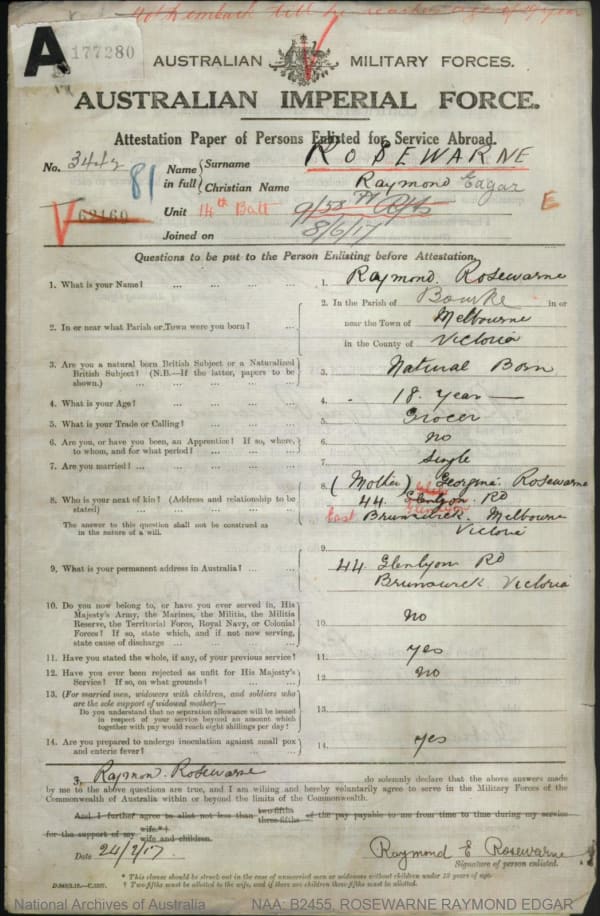 Not to embark till he reaches age of 19 year
A
177280
AUSTRALIAN MILITARY FORCES.
AUSTRALIAN IMPERIAL FORCE.
Attestation Paper of Persons Enlisted for Service Abroad.
No. 3442
81
62169
Name in full { Surname ROSEWARNE
Christian Name Raymond Edgar
Unit 14th Batt
E
Joined on 8/6/17
Questions to be put to the Person Enlisting before Attestation.
1. What is your Name? ... ... ... 1. Raymond. Rosewarne
2. In or near what Parish or Town were you born? ... 2. In the Parish of Bourke in or
near the Town of Melbourne
in the County of Victoria
3. Are you a natural born British Subject or a Naturalized
British Subject? (N.B.—If the latter, papers to be
shown.) ... ... ... 3. Natural Born
4. What is your Age? ... ... ... 4. 18. Year —
5. What is your Trade or Calling? ... ... 5. Grocer
6. Are you, or have you been, an Apprentice? If so, where,
to whom, and for what period? ... ... 6. no
7. Are you married? ... ... ... 7. Single
8. Who is your next of kin? (Address and relationship to be
stated) ... ... ... 8. (Mother) Georgina. Rosewarne
44. Glenlyon. RD
East Brunswick. Melbourne
Victoria
The answer to this question shall not be construed as
in the nature of a will.
9. What is your permanent address in Australia? ... ... 9. 44. Glenlyon RD
Brunswick Victoria
10. Do you now belong to, or have you ever served in, His
Majesty's Army, the Marines, the Militia, the Militia
Reserve, the Territorial Force, Royal Navy, or Colonial
Forces? If so, state which, and if not now serving,
state cause of discharge ... ... ... 10. no
11. Have you stated the whole, if any, of your previous service? 11. yes
12. Have you ever been rejected as unfit for His Majesty's
Service? If so, on what grounds? ... ... 12. no
13. (For married men, widowers with children, and soldiers who
are the sole support of widowed mother)—
Do you understand that no separation allowance will be issued
in respect of your service beyond an amount which
together with pay would reach eight shillings per day? 13.
14. Are you prepared to undergo inoculation against small pox
and enteric fever? ... ... ... 14. yes
I, Raymon. Rosewarne do solemnly declare that the above answers made
by me to the above questions are true, and I am willing and hereby voluntarily agree to serve in the Military Forces of the
Commonwealth of Australia within or beyond the limits of the Commonwealth.
And I further agree to allot not less than two-fifths three-fifths of the pay payable to me from time to time during my service
for the support of my wife.*†
wife and children.
Date 24/2/17. Raymond E Rosewarne
Signature of person enlisted.
* This clause should be struck out in the case of unmarried men or widowers without children under 18 years of age.
† Two-fifths must be allotted to the wife, and if there are children three-fifths must be allotted.
National Archives of Australia NAA: B2455, ROSEWARNE RAYMOND EDGAR